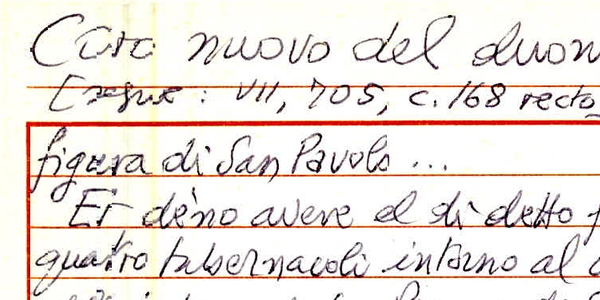 Coro nuovo del duom
[segue : VII, 705, c. 168 recto
figura di San Pavolo ...
Et déno avere el dì detto
quatro tabernacoli intorno al